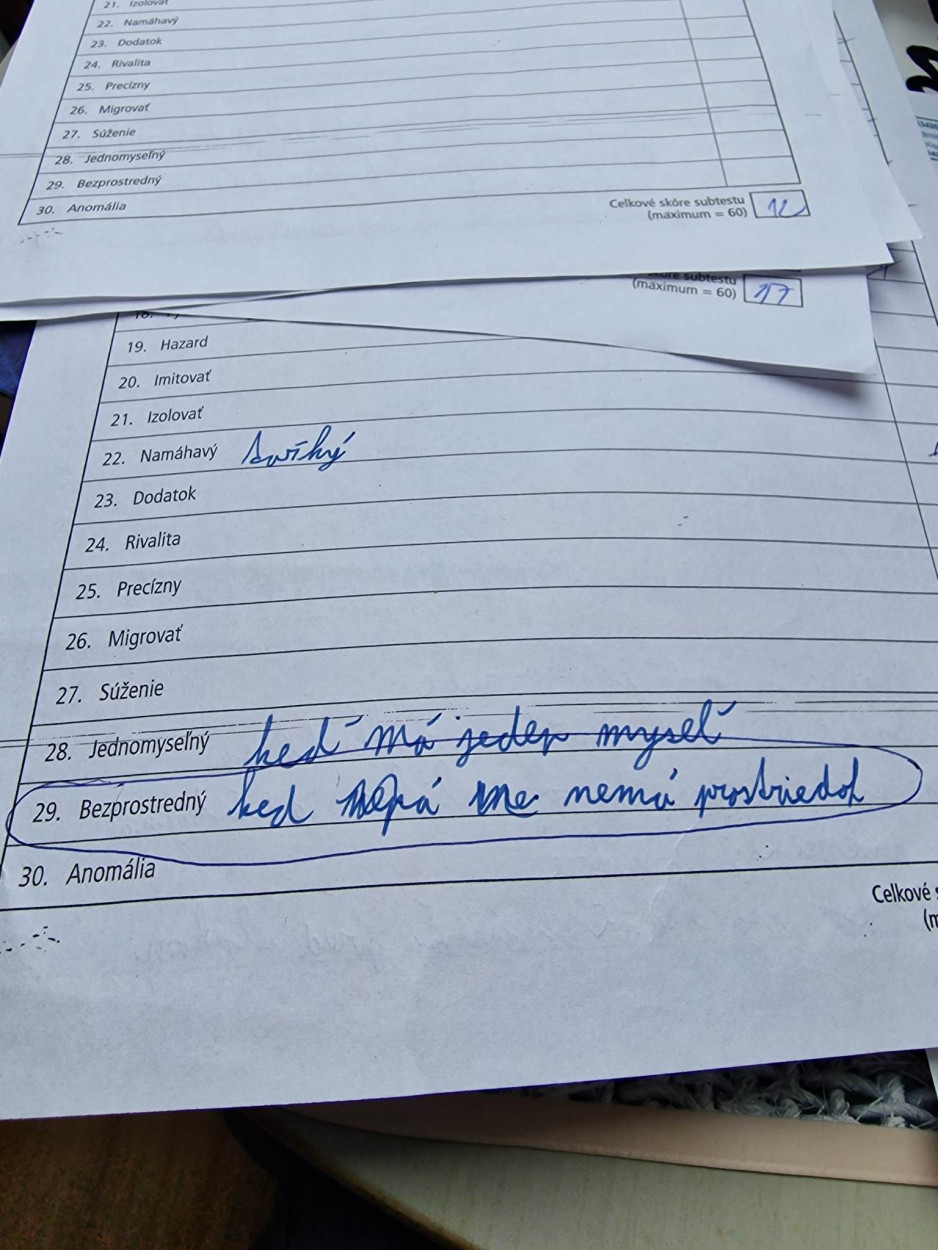 21. Izolovať
22. Namáhavý
23. Dodatok
24. Rivalita
25. Precízny
26. Migrovať
27. Súženie
28. Jednomyseľný
29. Bezprostredný
30. Anomália
Celkové skóre subtestu
(maximum = 60) 12
skóre subtestu
(maximum = 60) 17
19. Hazard
20. Imitovať
21. Izolovať
22. Namáhavý
23. Dodatok
24. Rivalita
25. Precízny
26. Migrovať
27. Súženie
28. Jednomyseľný keď má jeden mysel
29. Bezprostredný ked nemá prostriedok
30. Anomália
Celkové s
(m